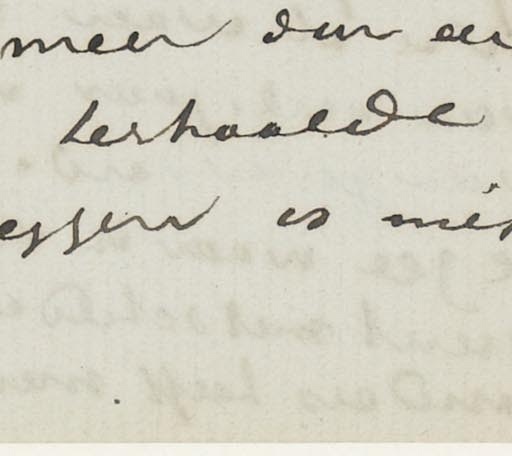 meer dan ee
herhaalde
eggen is mis